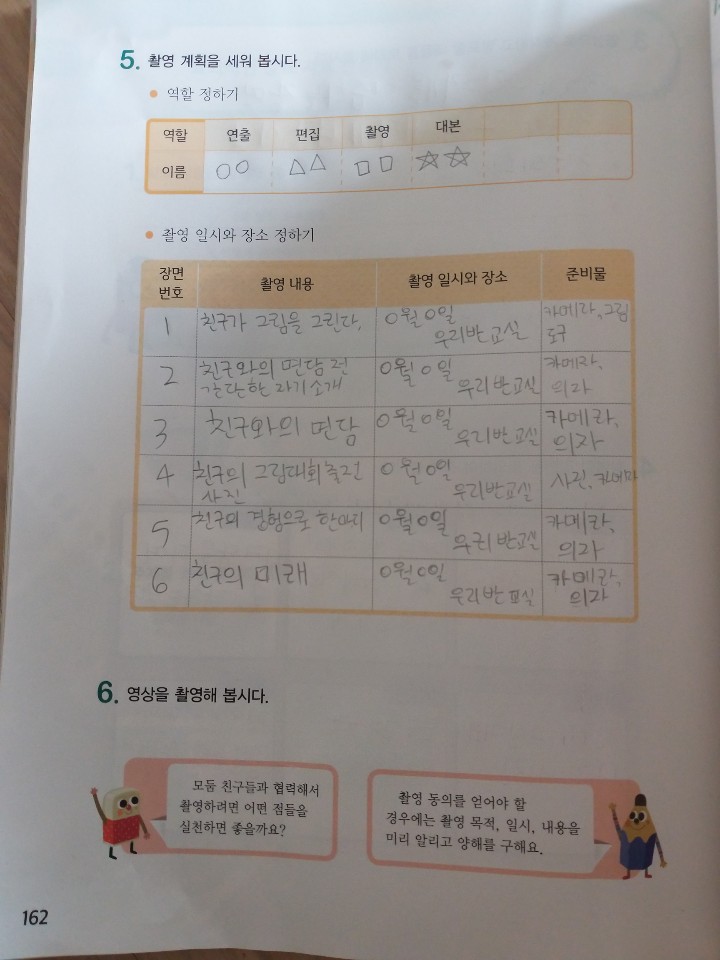 5. 촬영 계획을 세워 봅시다.
역할 정하기
역할 연출 편집 촬영 대본
이름 ○○ △△ □□ ☆☆
촬영 일시와 장소 정하기
장면 번호 촬영 내용 촬영 일시와 장소 준비물
1 친구가 그림을 그린다. 0월 0일 우리반 교실 카메라, 그림 도구
2 친구와의 면담 전 간단한 자기소개 0월 0일 우리반 교실 카메라, 의자
3 친구와의 면담 0월 0일 우리반 교실 카메라, 의자
4 친구의 그림대회 출전 사진 0월 0일 우리반 교실 사진, 카메라
5 친구의 경험으로 한마디 0월 0일 우리 반 교실 카메라, 의자
6 친구의 미래 0월 0일 우리반 교실 카메라, 의자
6. 영상을 촬영해 봅시다.
모둠 친구들과 협력해서
촬영하려면 어떤 점들을
실천하면 좋을까요?
촬영 동의를 얻어야 할
경우에는 촬영 목적, 일시, 내용을
미리 알리고 양해를 구해요.
162